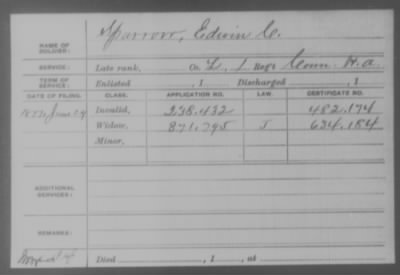 NAME OF SOLDIER: Sparrow, Edwin C.
SERVICE: Late rank, Co. L, 1 Reg't Conn. H. A.
TERM OF SERVICE: Enlisted , 1 Discharged , 1
DATE OF FILING. CLASS. APPLICATION NO. LAW. CERTIFICATE NO.
June Invalid, 338.432 482.174
Widow, 871.795 J 634.184
Minor,
ADDITIONAL SERVICES:
REMARKS:
Died , 1 , at